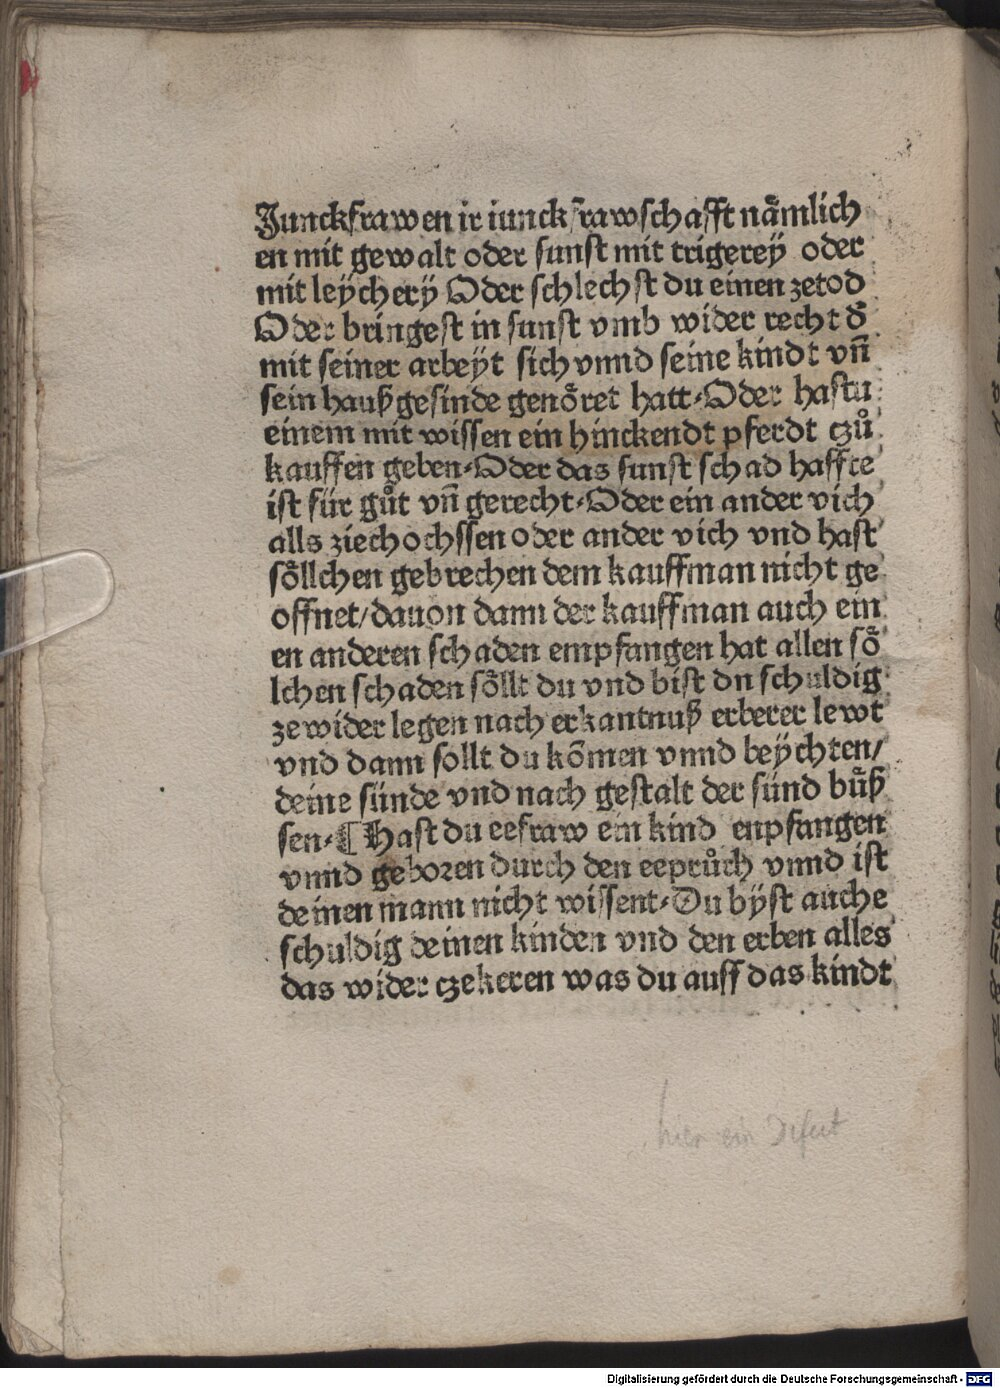 Junckfrawen ir iunckfrawschafft nämlich
en mit gewalt oder sunst mit trigerey oder
mit leÿcherÿ Oder schlechst du einen zetod
Oder bringest in sunst vmb wider recht d̃
mit seiner arbeÿt sich vnnd seine kindt vñ
sein haußgesinde genöret hatt⸗Oder hastu
einem mit wissen ein hinckendt pferdt czů
kauffen geben⸗Oder das sunst schad haffte
ist für gůt vñ gerecht⸗Oder ein ander vich
alls ziechochssen oder ander vich vnd hast
söllchen gebrechen dem kauffman nicht ge
offnet/dauon dann der kauffman auch ein
en anderen schaden empfangen hat allen sö
lchen schaden söllt du vnd bist dn schuldig
ze wider legen nach erkantnuß erberer lewt
vnd dann sollt du kömen vnnd beÿchten/
deine sünde vnd nach gestalt der sünd bůß
sen⸗¶Hast du eefraw ein kind enpfangen
vnnd geboꝛen durch den eepruͦch vnnd ist
deinen mann nicht wissent⸗Du bÿst auche
schuldig deinen kinden vnd den erben alles
das wider czekeren was du auff das kindt
hier ein Defect
Digitalisierung gefördert durch die Deutsche Forschungsgemeinschaft - DFG